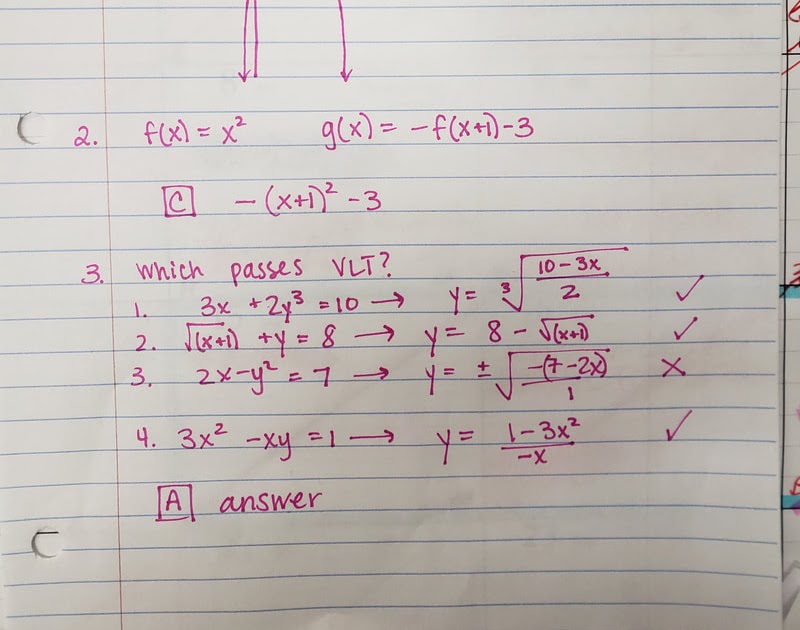 2. f(x) = x² g(x) = -f(x+1)-3
C -(x+1)² -3
3. which passes VLT?
1. 3x + 2y³ = 10 → y = ∛((10-3x)/2) ✓
2. √(x+1) + y = 8 → y = 8 - √(x+1) ✓
3. 2x-y² = 7 → y = ±√(-(7-2x)/1) ✗
4. 3x² -xy = 1 → y = (1-3x²)/(-x) ✓
A answer